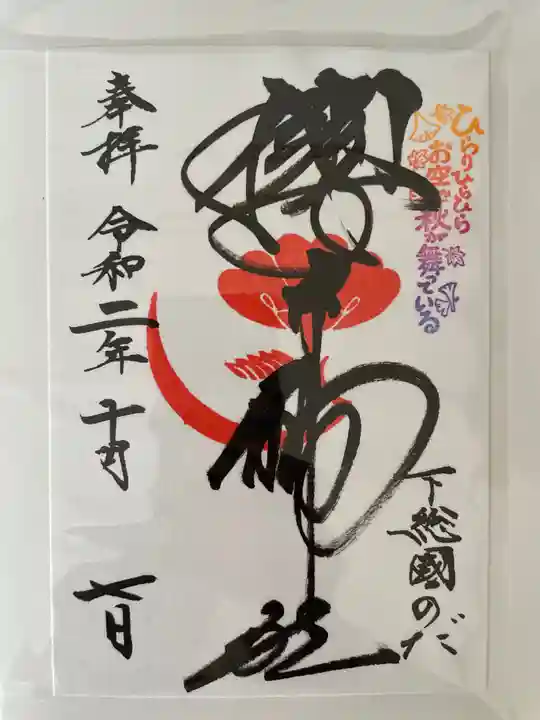 ひらりひらひら
お空で秋が舞っている
櫻木神社
下総國のだ
奉拝 令和二年 十月 七日